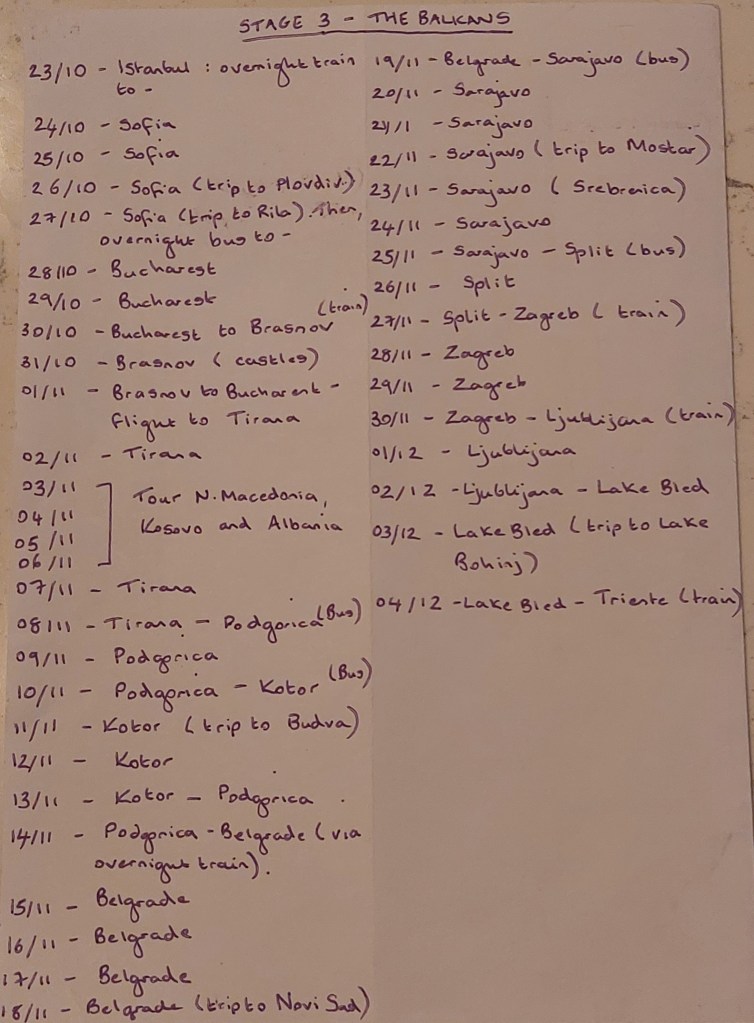 STAGE 3 - THE BALKANS
23/10 - Istanbul : overnight train
to -
24/10 - Sofia
25/10 - Sofia
26/10 - Sofia (trip to Plovdiv.)
27/10 - Sofia (trip to Rila). Then,
overnight bus to -
28/10 - Bucharest
29/10 - Bucharest
30/10 - Bucharest to Brasnov (train)
31/10 - Brasnov (castles)
01/11 - Brasnov to Bucharest -
flight to Tirana
02/11 - Tirana
03/11
04/11
05/11
06/11
Tour N. Macedonia,
Kosovo and Albania
07/11 - Tirana
08/11 - Tirana - Podgorica (Bus)
09/11 - Podgorica
10/11 - Podgorica - Kotor (Bus)
11/11 - Kotor (trip to Budva)
12/11 - Kotor
13/11 - Kotor - Podgorica
14/11 - Podgorica - Belgrade (via
overnight train).
15/11 - Belgrade
16/11 - Belgrade
17/11 - Belgrade
18/11 - Belgrade (trip to Novi Sad)
19/11 - Belgrade - Sarajavo (bus)
20/11 - Sarajavo
21/1 - Sarajavo
22/11 - Sarajavo (trip to Mostar)
23/11 - Sarajavo (Srebrenica)
24/11 - Sarajavo
25/11 - Sarajavo - Split (bus)
26/11 - Split
27/11 - Split - Zagreb (train)
28/11 - Zagreb
29/11 - Zagreb
30/11 - Zagreb - Ljublijana (train)
01/12 - Ljublijana
02/12 - Ljublijana - Lake Bled
03/12 - Lake Bled (trip to Lake
Bohinj)
04/12 - Lake Bled - Trieste (train)